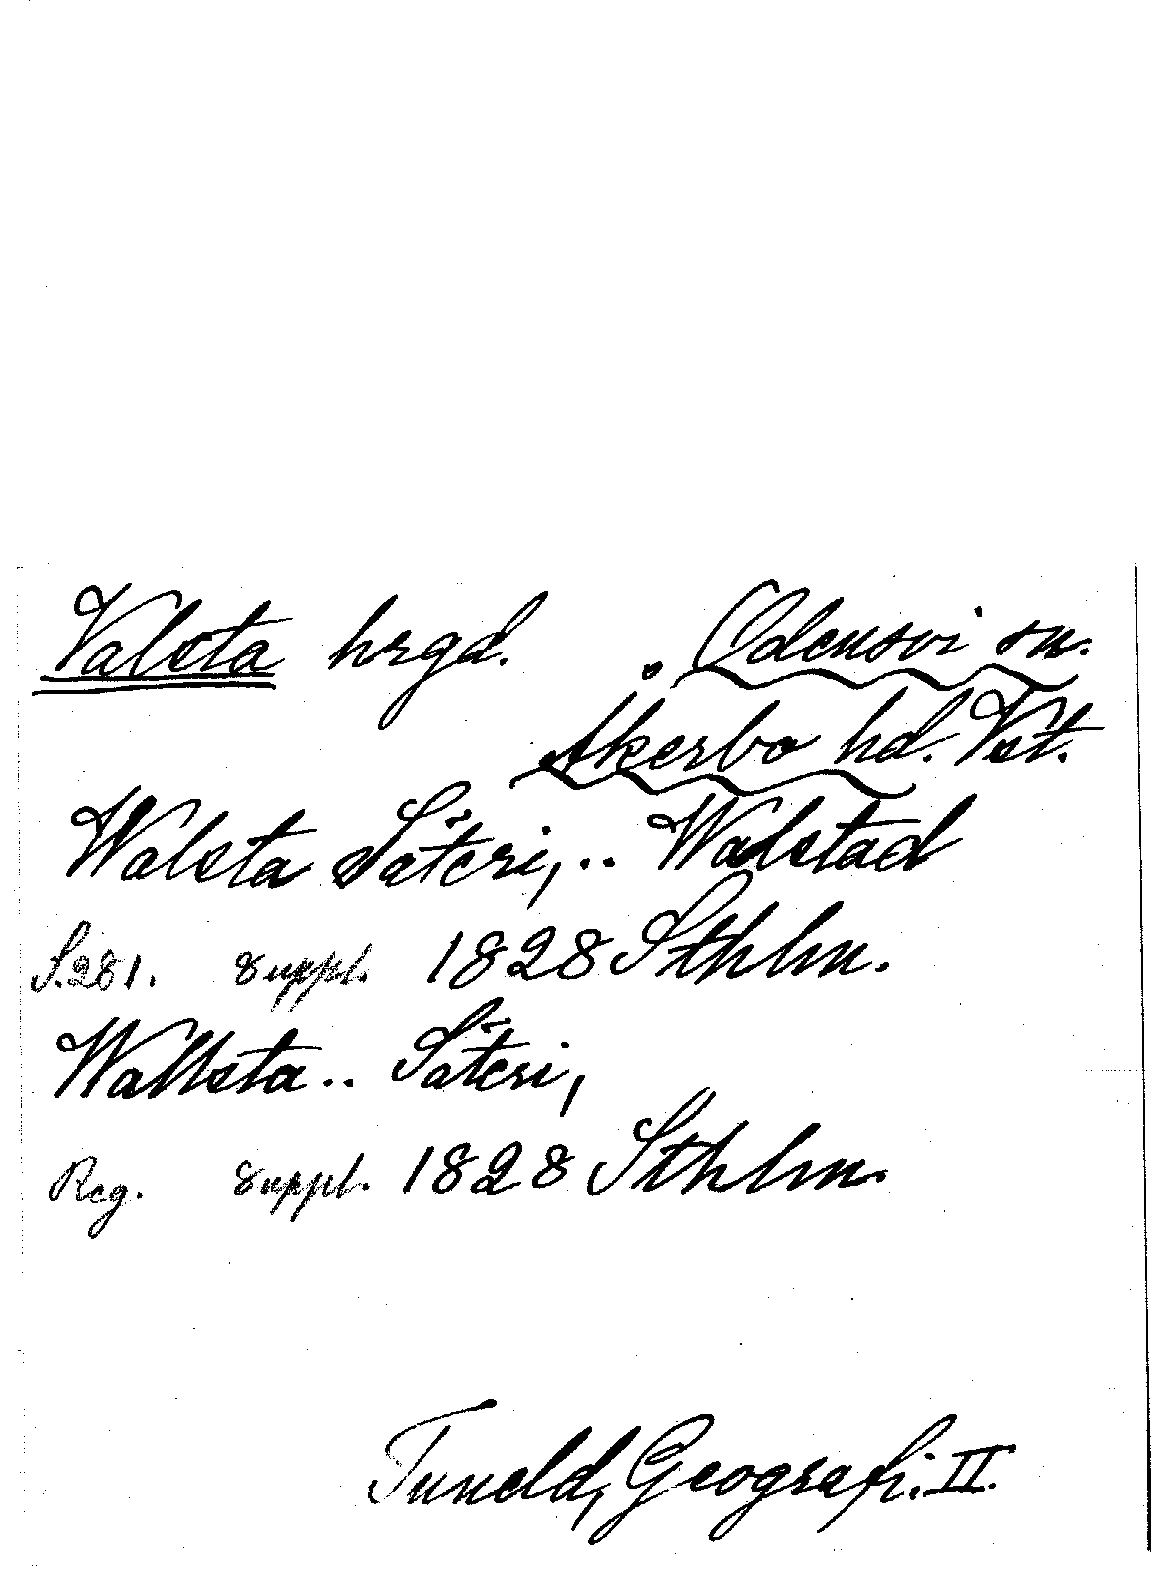 Valsta hrgd. Odensvi sn.
Åkerbo hd. Vst.
Walsta Säteri, .. Walstad
S. 281. suppl. 1828 Sthlm.
Wallsta .. Säteri,
Reg. suppl. 1828 Sthlm.
Tuneld, Geografi. II.